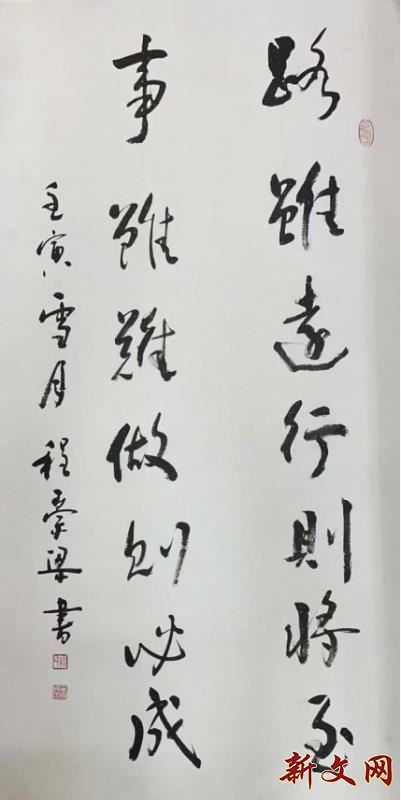 路雖遠行則將至
事雖難做則必成
壬寅雪月 程 梁書
新文网